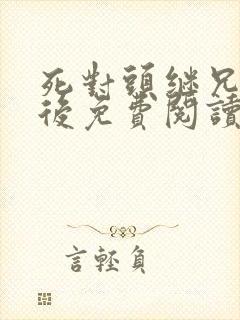 死對頭繼兄
後免費閱讀
言輕負